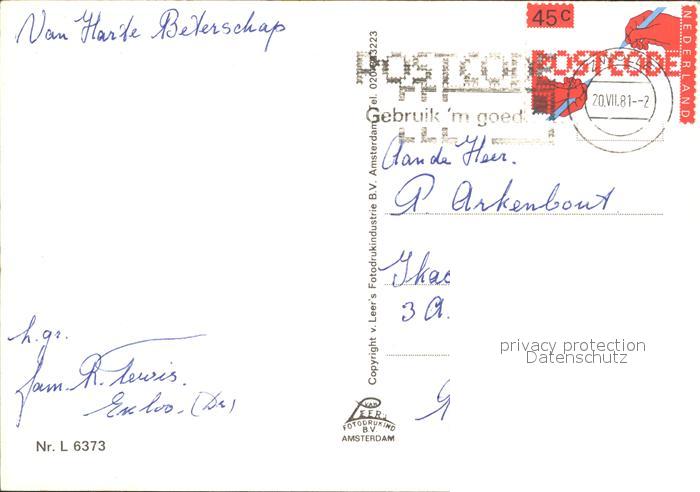 Van Harte Beterschap
45c
NEDERLAND
POSTCODE
POSTCODE
20.VII.81.--2
Gebruik 'm goed
Aan de Heer.
P. Arkenbout
3 A.
privacy protection
Datenschutz
h. gr.
fam. R.
Exloo. (Dr)
Nr. L 6373
Copyright v. Leer's Fotodrukindustrie B.V. Amsterdam Tel. 020
VAN
LEER'S
FOTODRUKIND
B.V.
AMSTERDAM